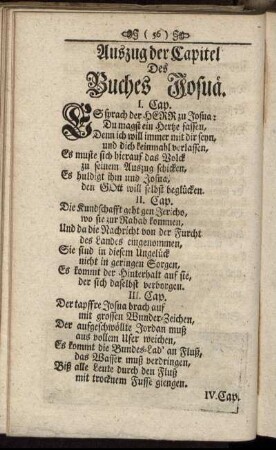 ( 56 )
Auszug der Capitel
Des
Buches Josuä.
I. Cap.
ES sprach der HERR zu Josua:
Du magst ein Hertze fassen,
Denn ich will immer mit dir seyn,
und dich keinmahl verlassen,
Es muste sich hierauf das Volck
zu seinem Auszug schicken,
Es huldigt ihm und Josua,
den GOtt will selbst beglücken.
II. Cap.
Die Kundschafft geht gen Jericho,
wo sie zur Rahab kommen,
Und da die Nachricht von der Furcht
des Landes eingenommen,
Sie sind in diesem Ungelück
nicht in geringen Sorgen,
Es kommt der Hinterhalt auf sie,
der sich daselbst verborgen.
III. Cap.
Der tapffre Josua brach auf
mit grossen Wunder-Zeichen,
Der aufgeschwöllte Jordan muß
aus vollem Ufer weichen,
Es kommt die Bundes-Lad' an Fluß,
das Wasser muß verdringen,
Biß alle Leute durch den Fluß
mit trocknem Fusse giengen.
IV. Cap.